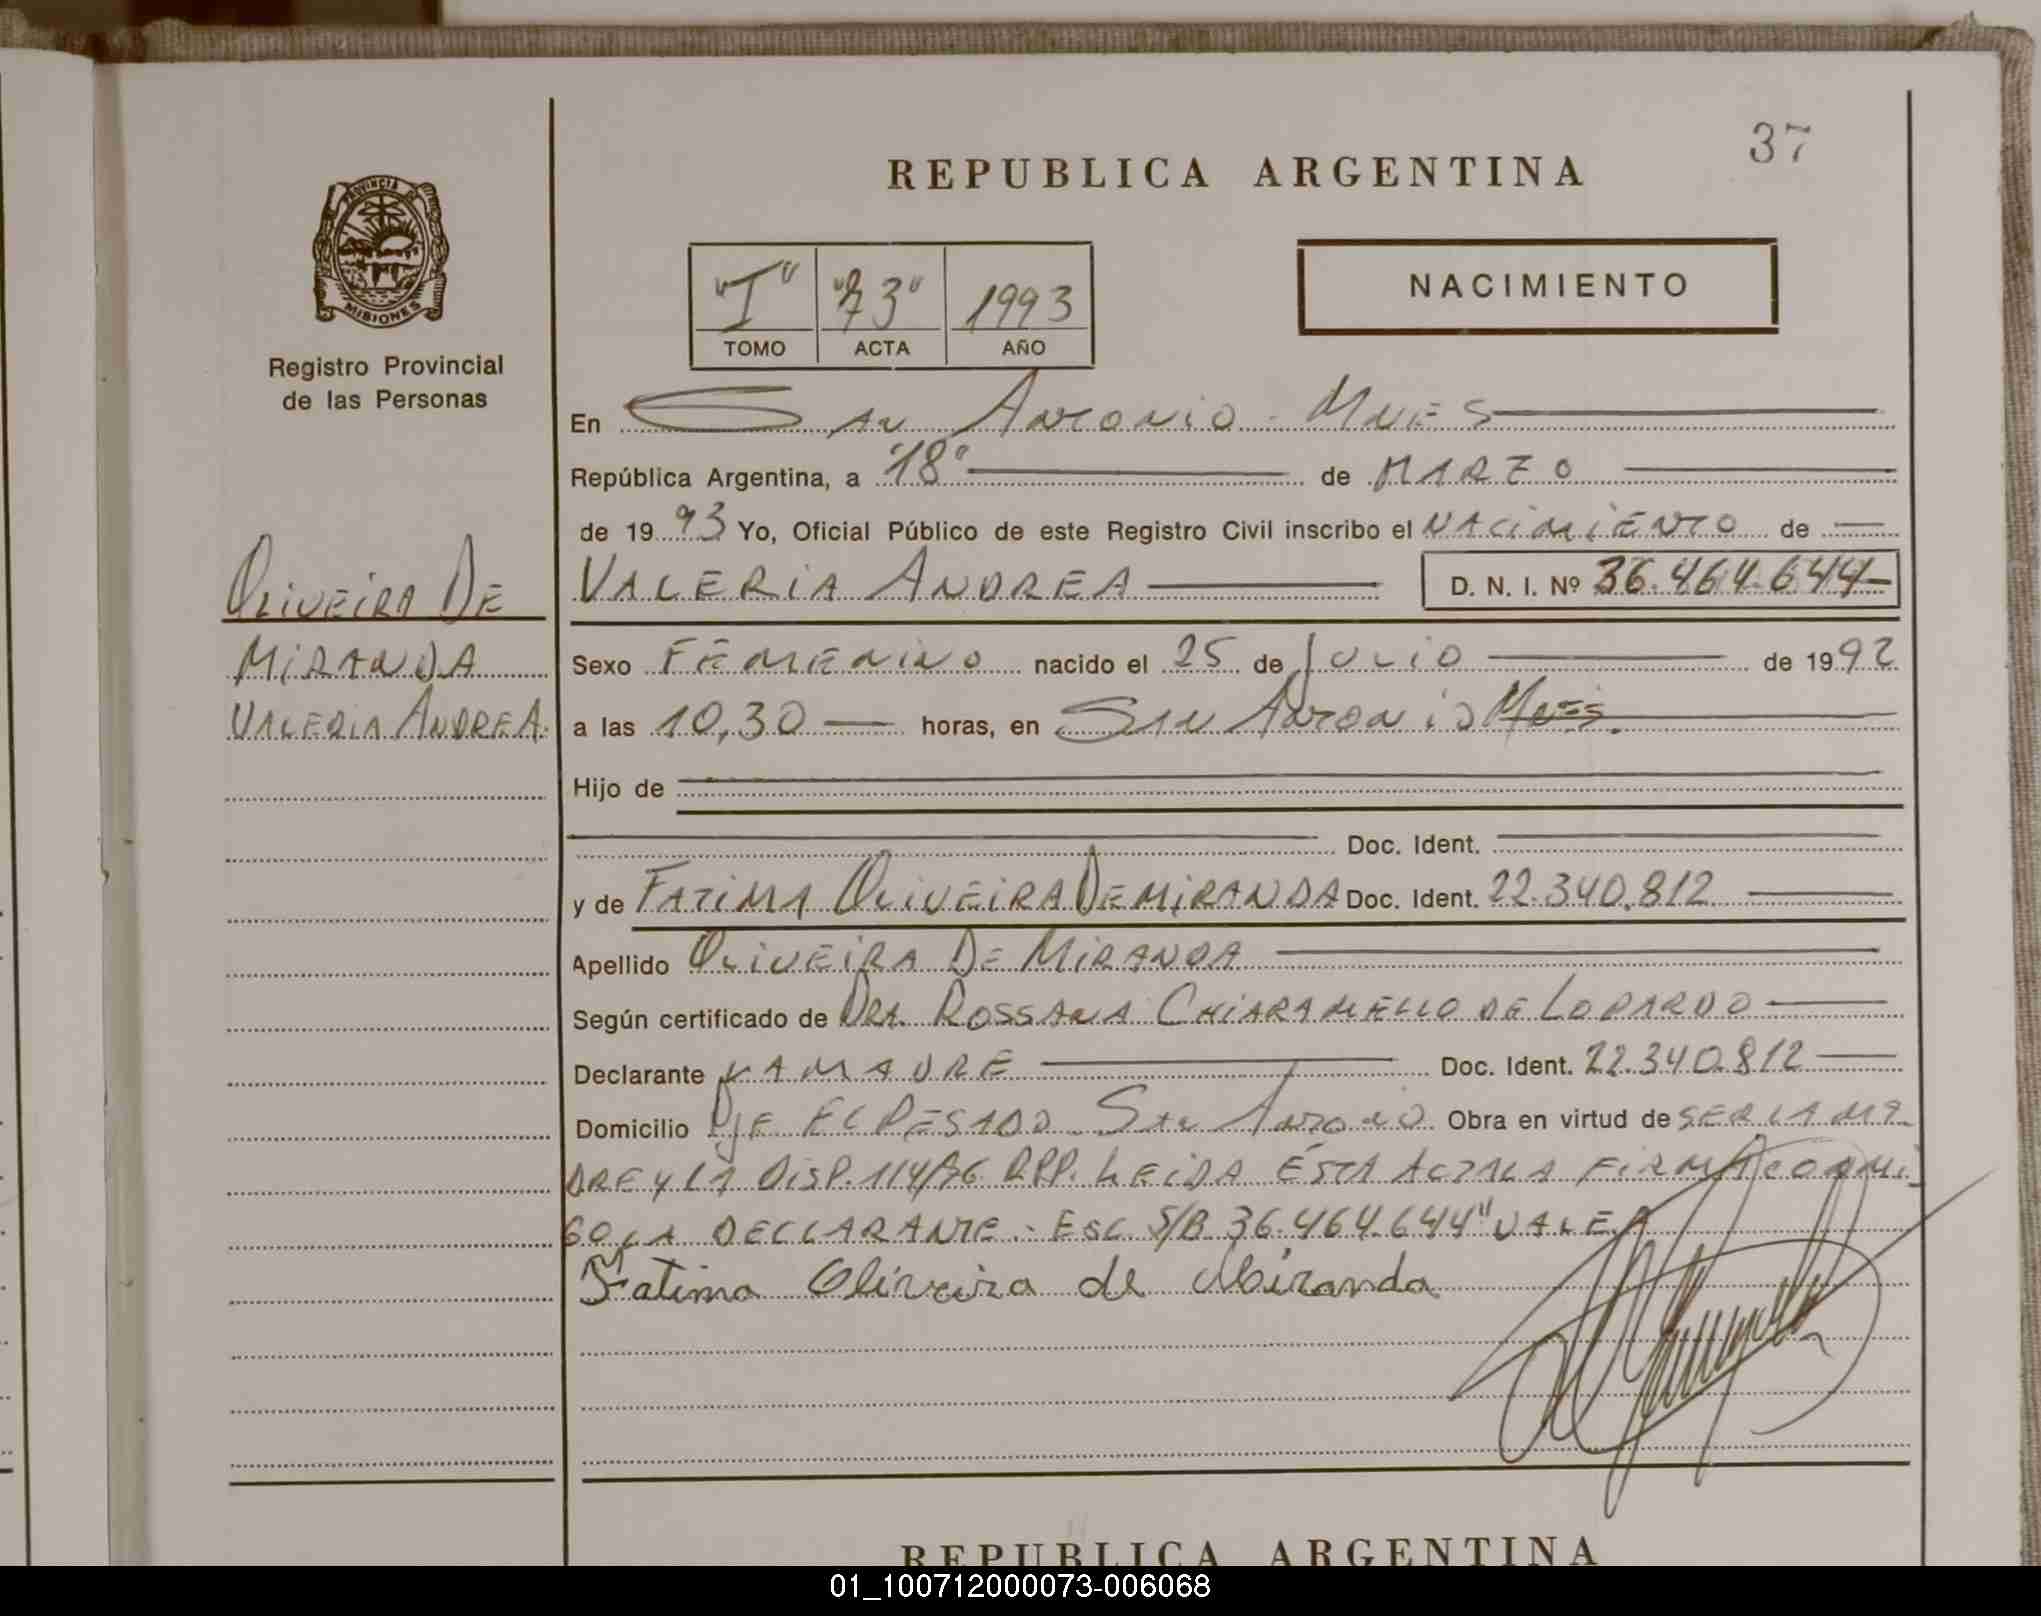 37
REPUBLICA ARGENTINA
PROVINCIA DE
MISIONES
Registro Provincial
de las Personas
"I" "73" 1993
TOMO ACTA AÑO
NACIMIENTO
En San Antonio - Mnes
República Argentina, a "18" de MARZO
de 1993 Yo, Oficial Público de este Registro Civil inscribo el NACIMIENTO de
VALERIA ANDREA D. N. I. Nº 36.464.644
OLIVEIRA DE
MIRANDA
VALERIA ANDREA.
Sexo FEMENINO nacido el 25 de JULIO de 1992
a las 10,30 horas, en SAN ANTONIO Mnes.
Hijo de
Doc. Ident.
y de FATIMA OLIVEIRA DE MIRANDA Doc. Ident. 22.340.812
Apellido OLIVEIRA DE MIRANDA
Según certificado de DRA. ROSSANA CHIARAMELLO DE LODARDO
Declarante LA MADRE Doc. Ident. 22.340.812
Domicilio PJE EL PESADO. SAN ANTONIO Obra en virtud de SER LA MA
DRE Y LA DISP. 114/86 RPP. LEIDA ÉSTA ACTA LA FIRMA CONMI
GO LA DECLARANTE. ESC. S/B 36.464.644" VALE
Fatima Oliveira de Miranda
REPUBLICA ARGENTINA
01_100712000073-006068